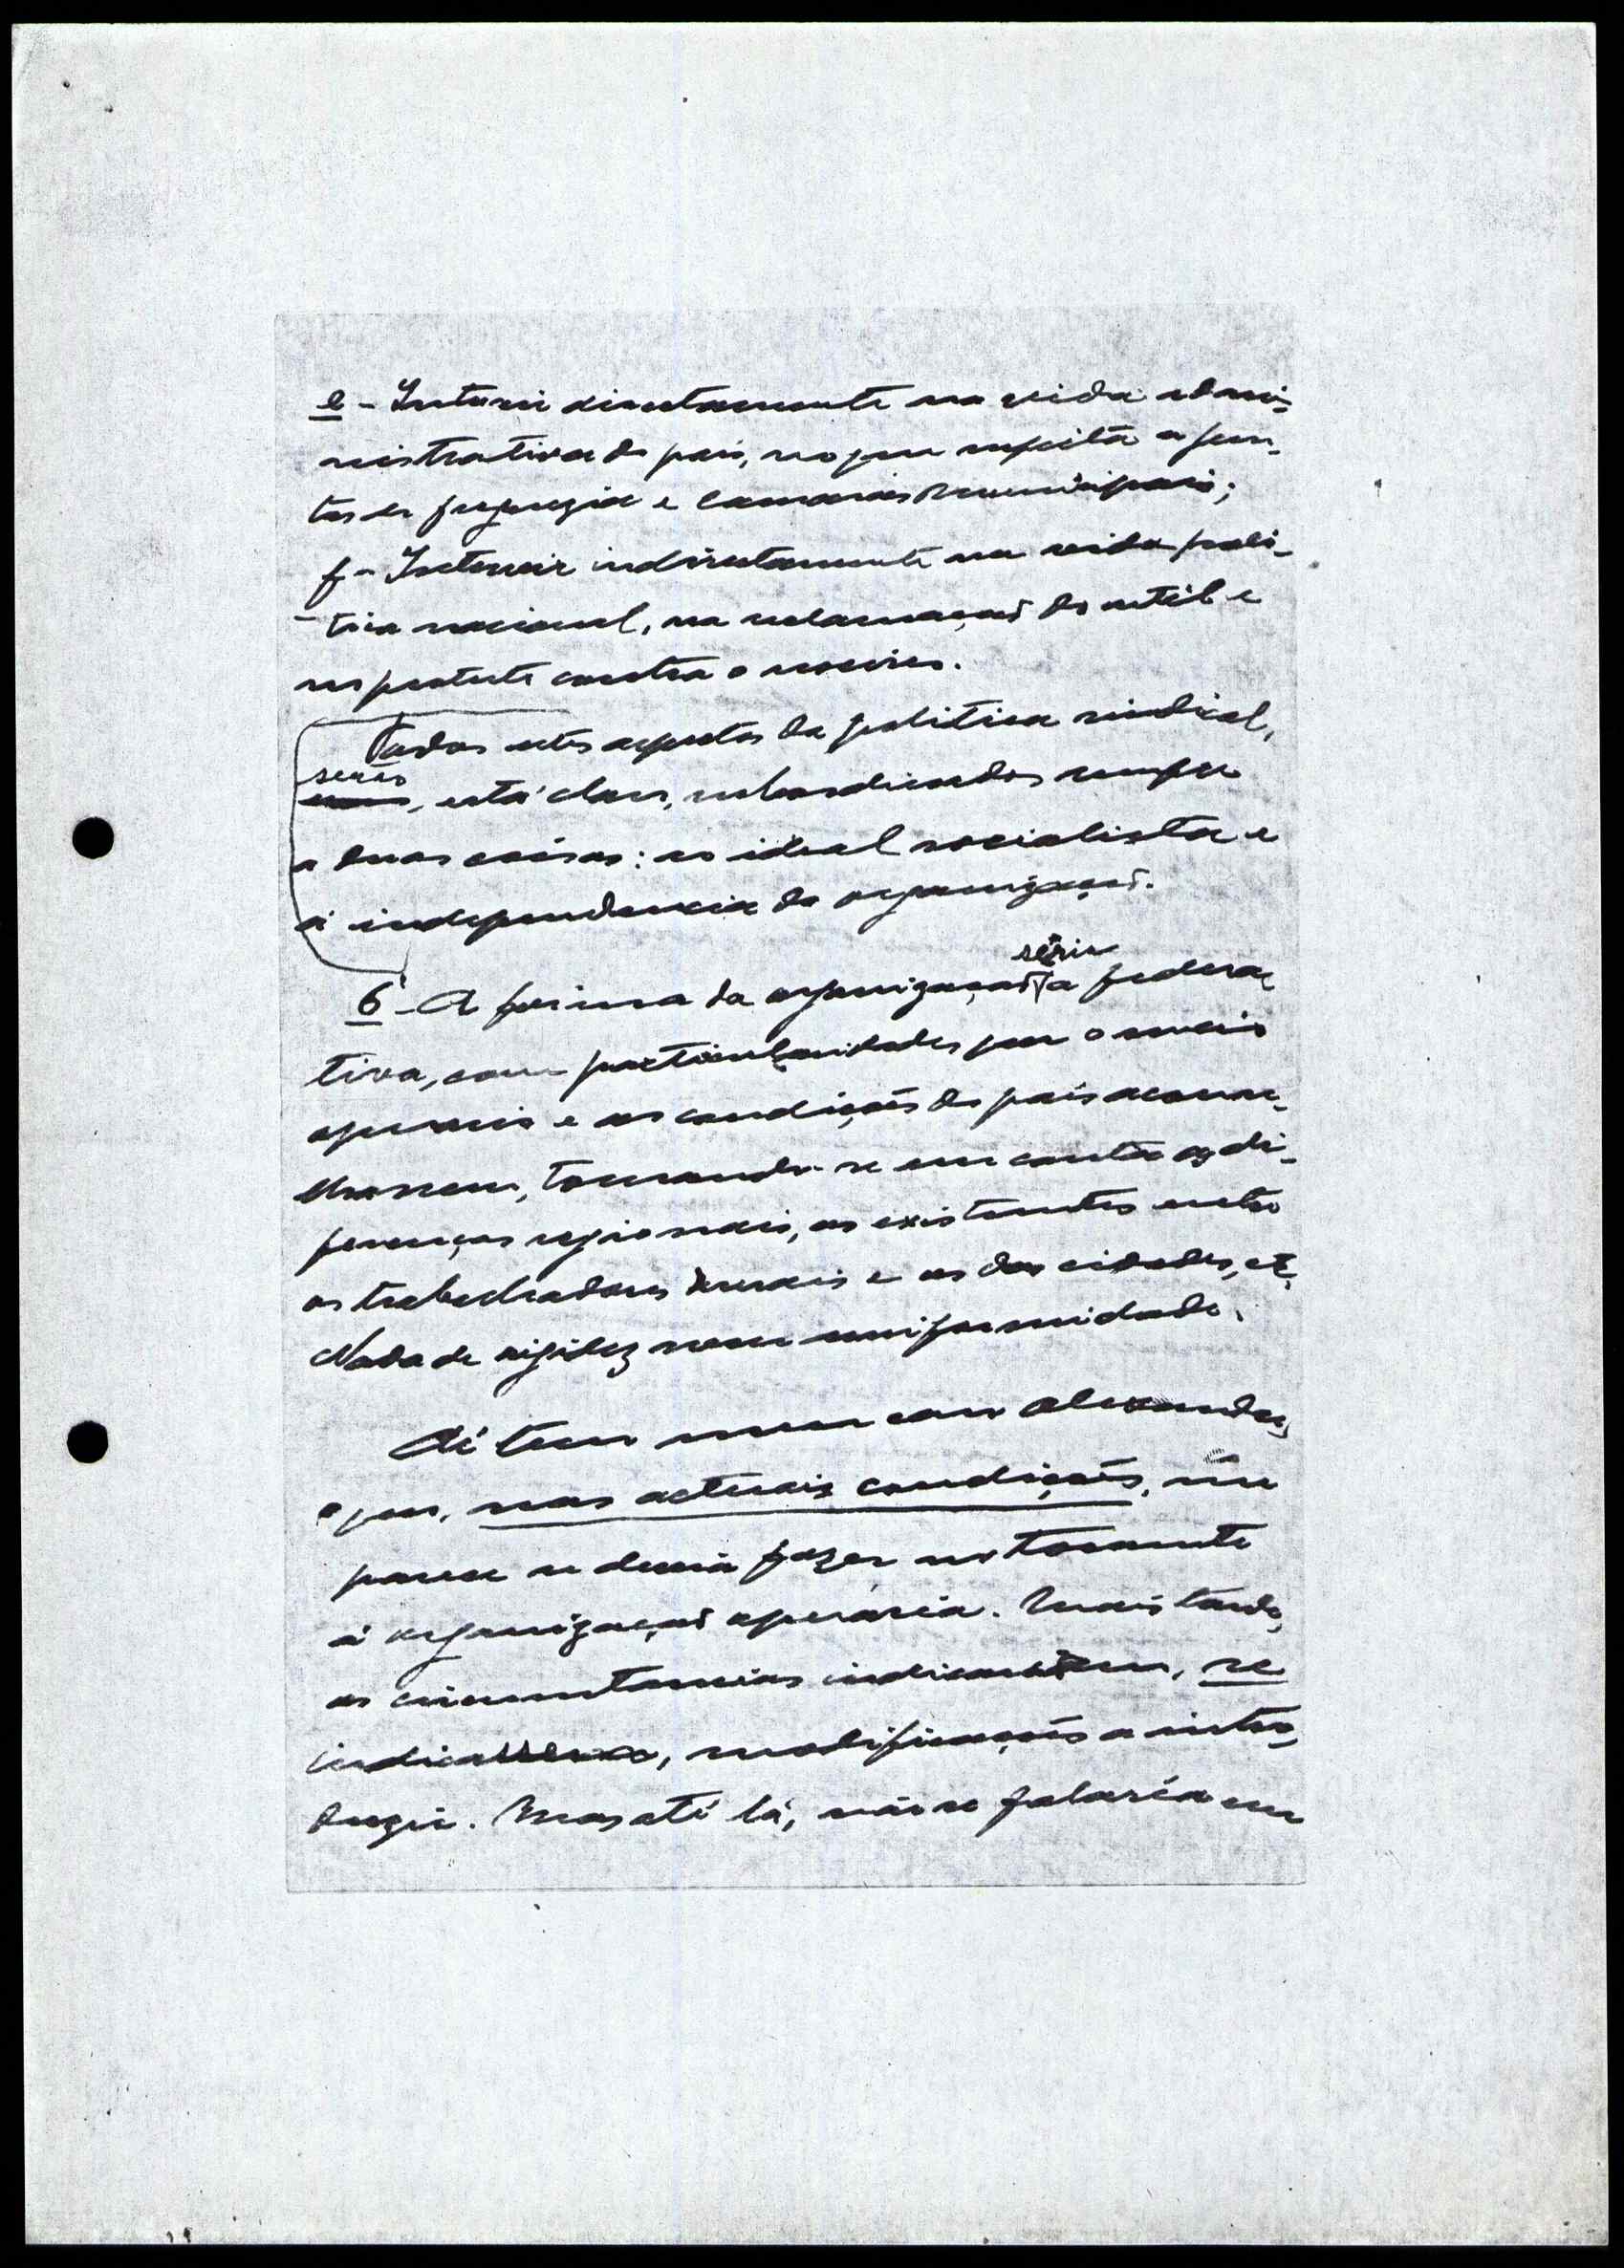 e - Intervir directamente na vida admi-
nistrativa do país, no que respeita a jun-
tas de freguezia e camaras municipais;
f - Intervir indirectamente na vida poli-
-tica nacional, na reclamação do util e
no protesto contra o nocivo.
Todos estes aspectos da politica sindical,
serão
, está claro, subordinados sempre
a duas coisas: ao ideal socialista e
á independencia da organização.
seria
6 - A forma da organização a federa-
tiva, com particularidades que o meio
operario e as condições do país aconse-
lhassem, tomando-se em conta as di-
ferenças regionais, as existentes entre
os trabalhadores rurais e os das cidades, etc.
Nada de rigidez nem uniformidade.
Aí tem meu caro Alexandre,
o que, nas actuais condições, me
parece se devia fazer no tocante
á organização operária. Mais tarde,
as circunstancias indicariam, se
indicassem, modificações a intro-
duzir. Mas até lá, não se falaria em